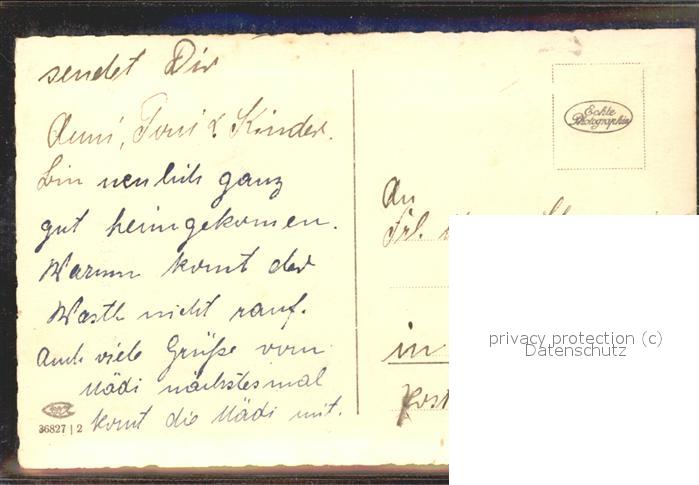 sendet Dir
Anni, Toni & Kinder.
Bin neulich ganz
gut heimgekomen.
Warum komt der
Wastl nicht rauf.
Auch viele Grüße vom
Mädi nächstesmal
komt die Mädi mit.
36827 | 2
Echte
Photographie
An
Frl.
in
Post
privacy protection (c)
Datenschutz